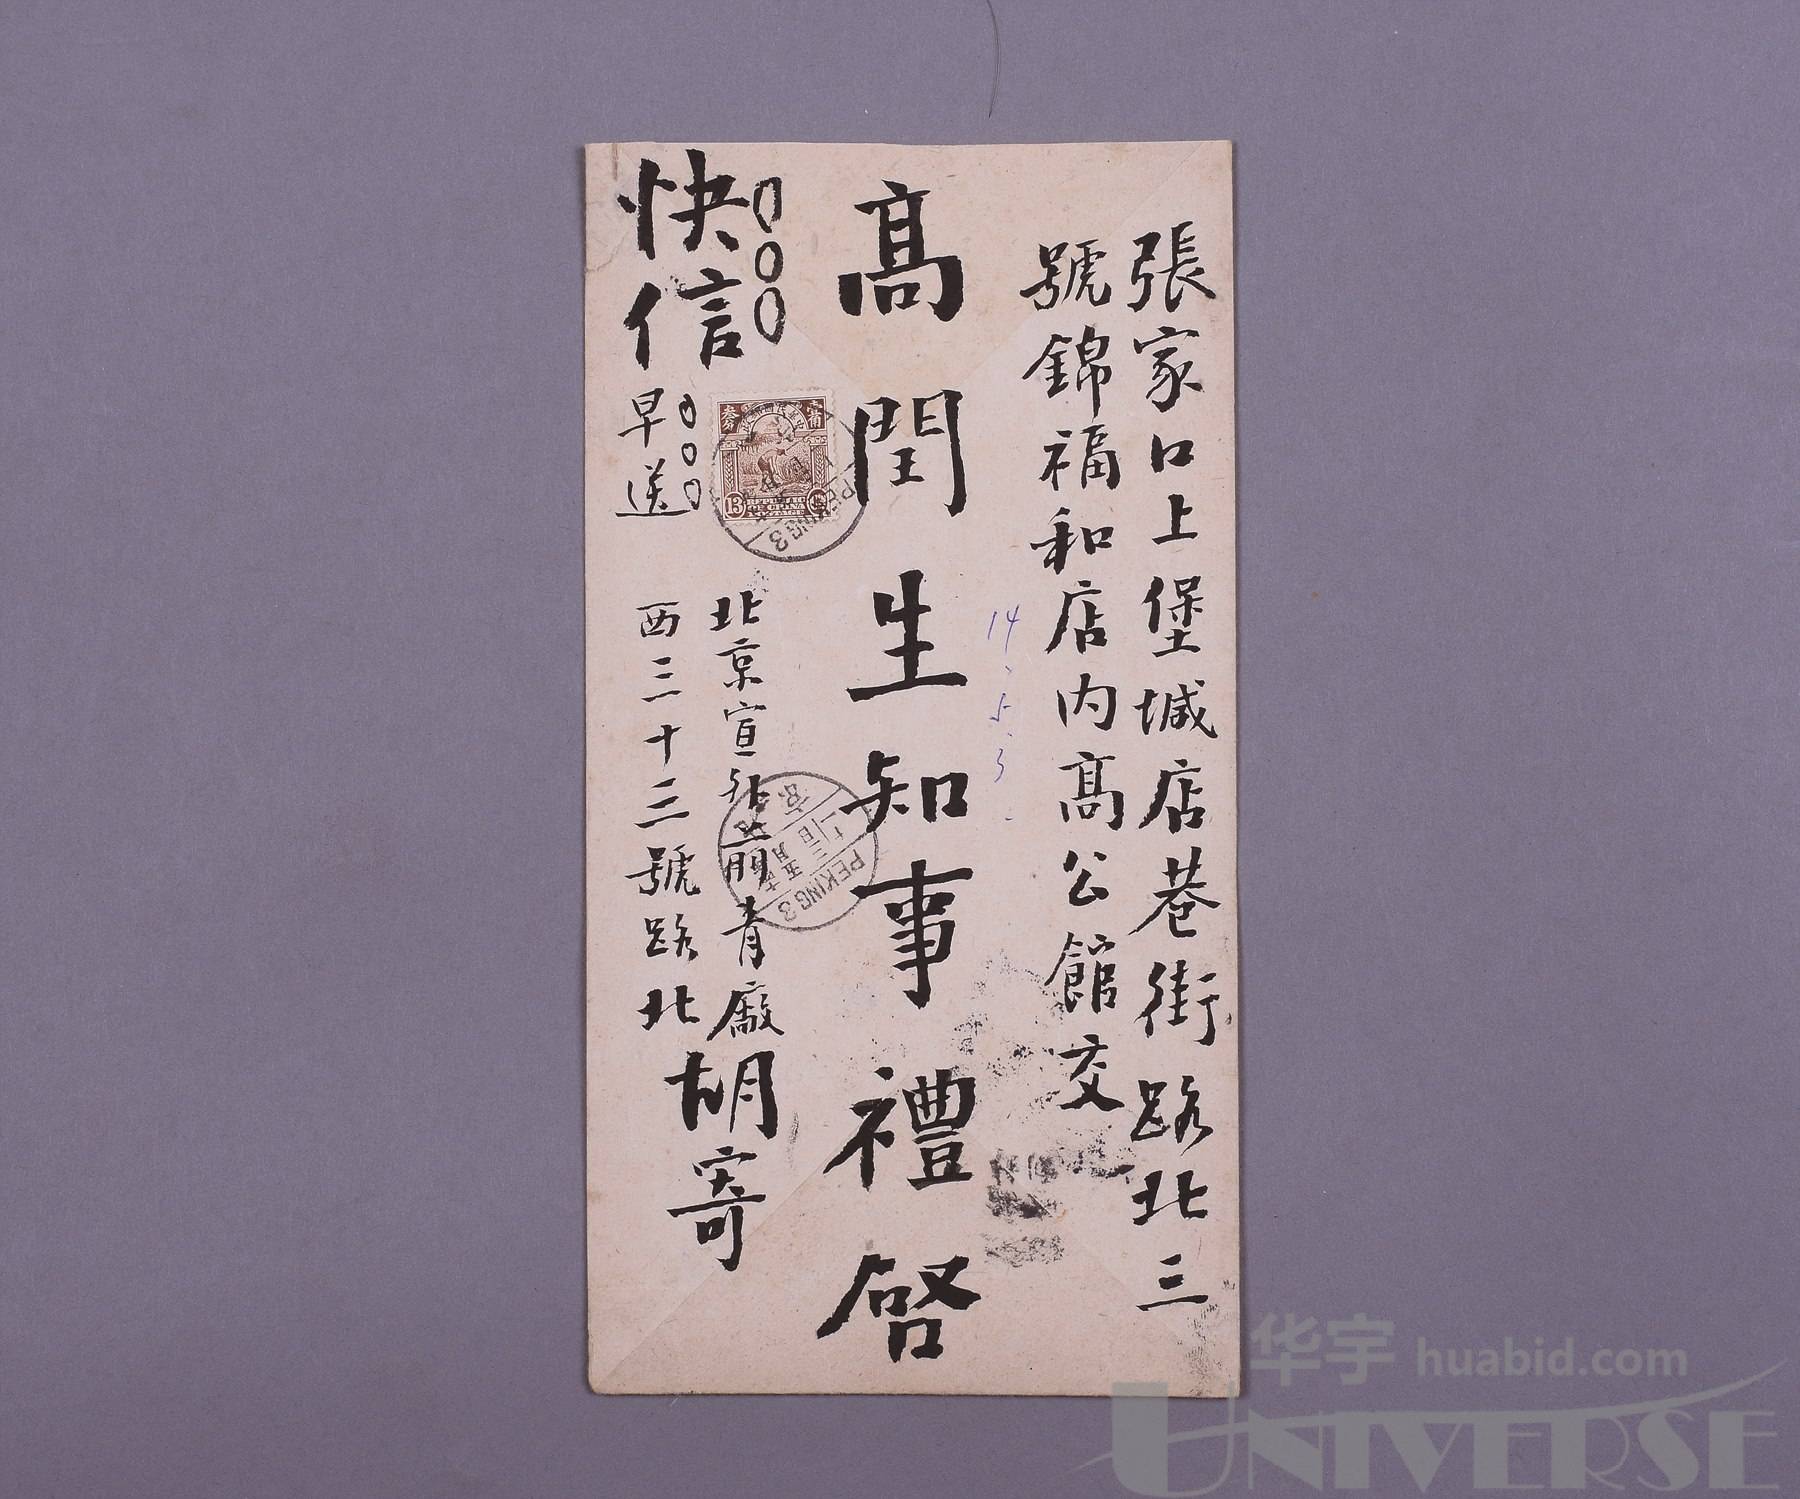 張家口上堡城店巷街路北三
號錦福和店內高公館交
高閏生知事禮啓
快信
早送
北京宣外上明青廠
西三十三號路北
胡寄
14、5、3
13
PEKING 3
PEKING 3
华宇 huabid.com
UNIVERSE